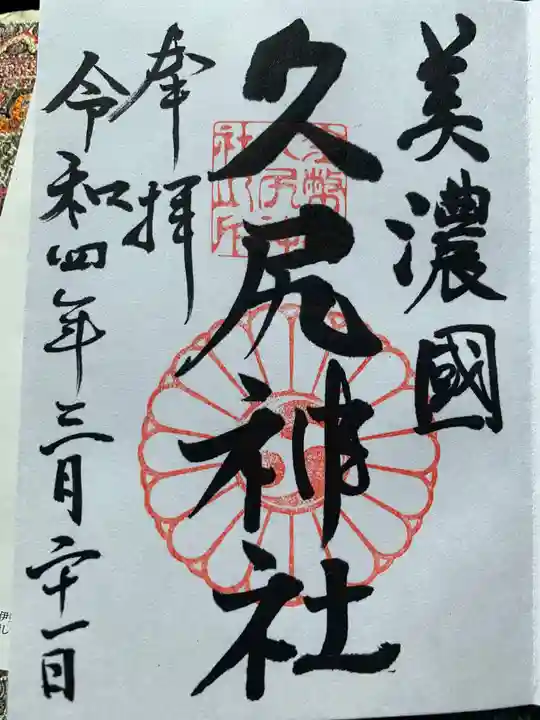 美濃國
久尻神社
奉拝
令和四年三月二十一日